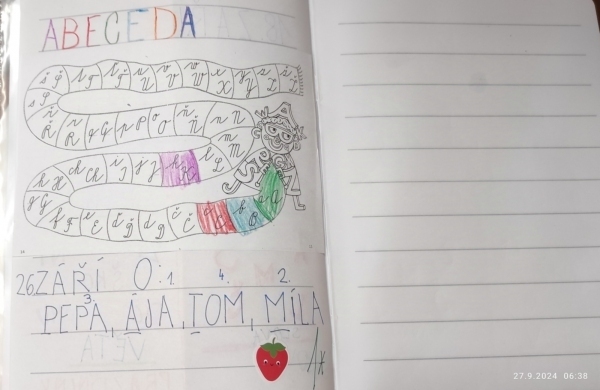 ABECEDA
š Š t T ť Ť u U v V w W x X y Y z Z ž Ž
s S
ř Ř r R q Q p P o O ň Ň n N
m M
l L
k K j J i I ch Ch
h H
g G
f F e E ď Ď d D č Č c C b B a A
26 ZÁŘÍ O: 1. 4. 2.
3.
PEPA, ÁJA, TOM, MÍLA
1*
27.9.2024 06:38